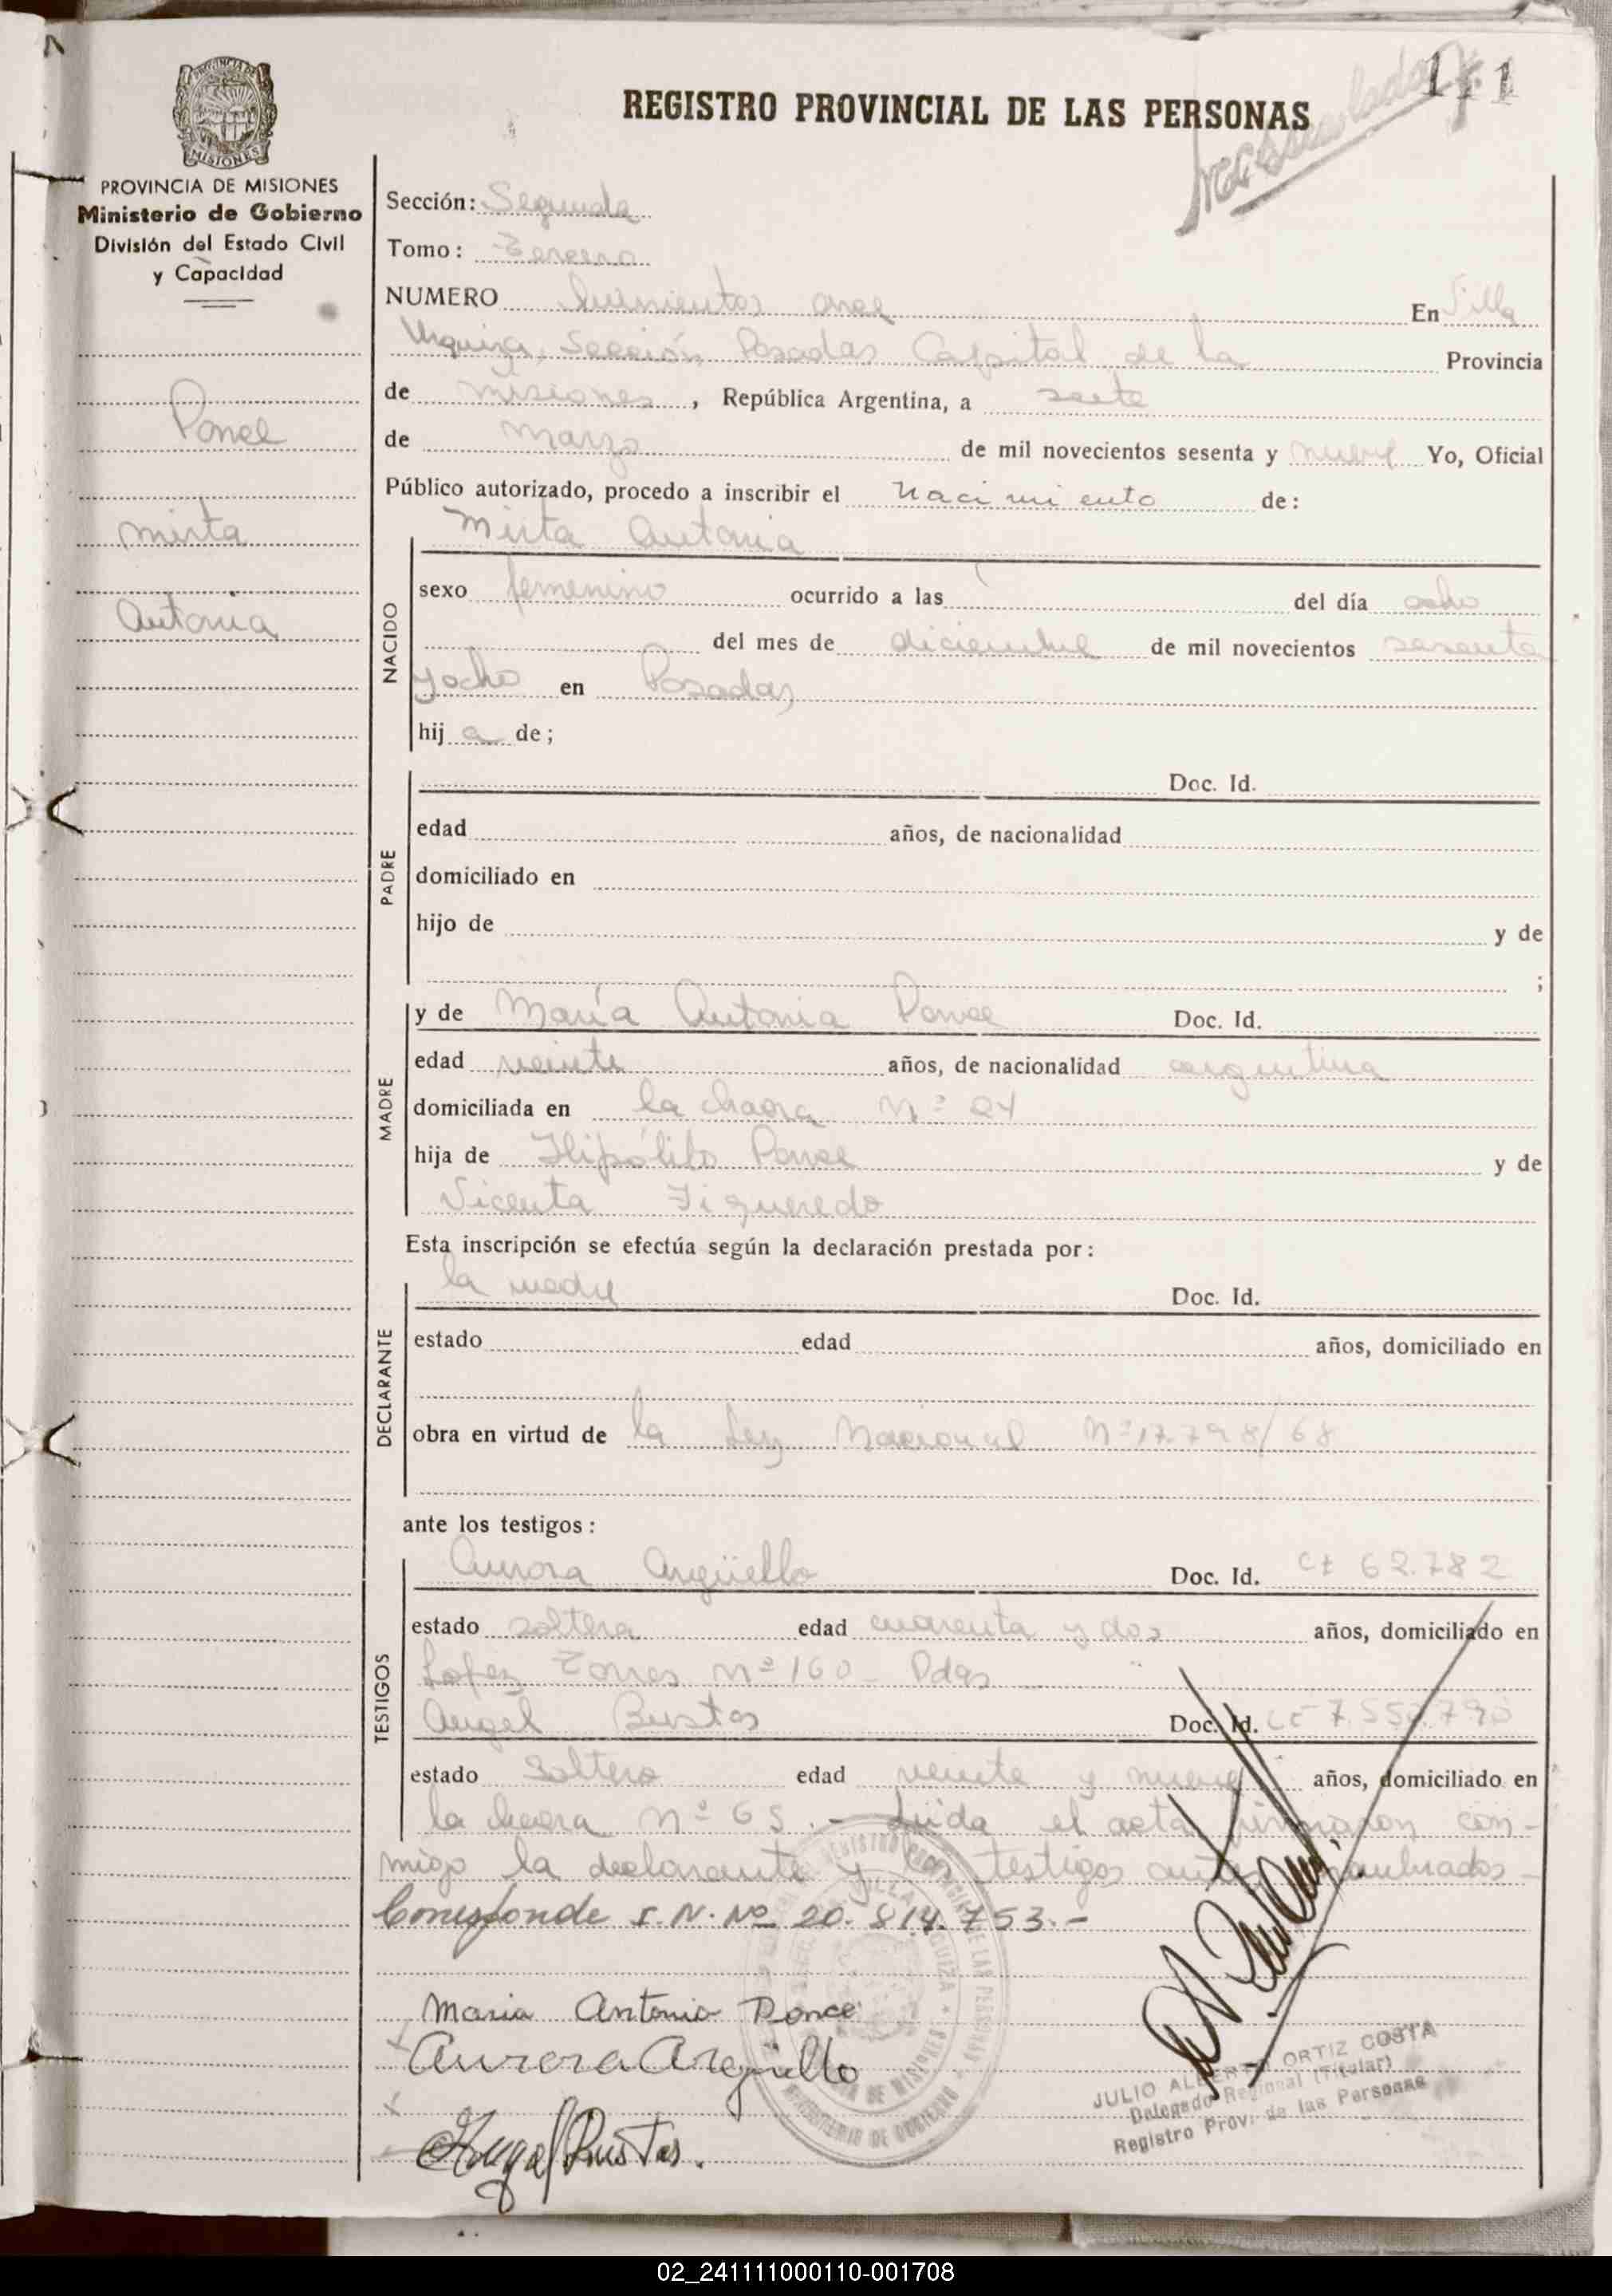 111
REGISTRO PROVINCIAL DE LAS PERSONAS
PROVINCIA DE MISIONES
Ministerio de Gobierno
División del Estado Civil
y Capacidad
Ponce
Mirta
Antonia
Sección: Segunda
Tomo: Tercero
NUMERO Quinientos once En Villa
Urquiza, Sección Posadas Capital de la Provincia
de Misiones, República Argentina, a siete
de Marzo de mil novecientos sesenta y nueve Yo, Oficial
Público autorizado, procedo a inscribir el nacimiento de:
NACIDO
Mirta Antonia
sexo femenino ocurrido a las del día ocho
del mes de diciembre de mil novecientos sesenta
y ocho en Posadas
hij a de;
PADRE
Doc. Id.
edad años, de nacionalidad
domiciliado en
hijo de y de
;
MADRE
y de María Antonia Ponce Doc. Id.
edad veinte años, de nacionalidad argentina
domiciliada en la chacra Nº 24
hija de Hipólito Ponce y de
Vicenta Figueredo
Esta inscripción se efectúa según la declaración prestada por:
DECLARANTE
la madre Doc. Id.
estado edad años, domiciliado en
obra en virtud de la Ley Nacional Nº 17.798/68
ante los testigos:
TESTIGOS
Aurora Argüello Doc. Id. 62.782
estado soltera edad cuarenta y dos años, domiciliado en
López Torres nº 160 - Pdas
Angel Bustos Doc. Id.
estado soltero edad veinte y nueve años, domiciliado en
la chacra Nº 65.- Leida el acta firmaron con-
migo la declarante y los testigos antes nombrados-
Corresponde I. N. Nº 20.814.753.-
Maria Antonia Ponce
Aurora Argüello
Angel Bustos.
JULIO ALBERTO ORTIZ COSTA
Delegado Regional (Titular)
Registro Prov. de las Personas
02_241111000110-001708